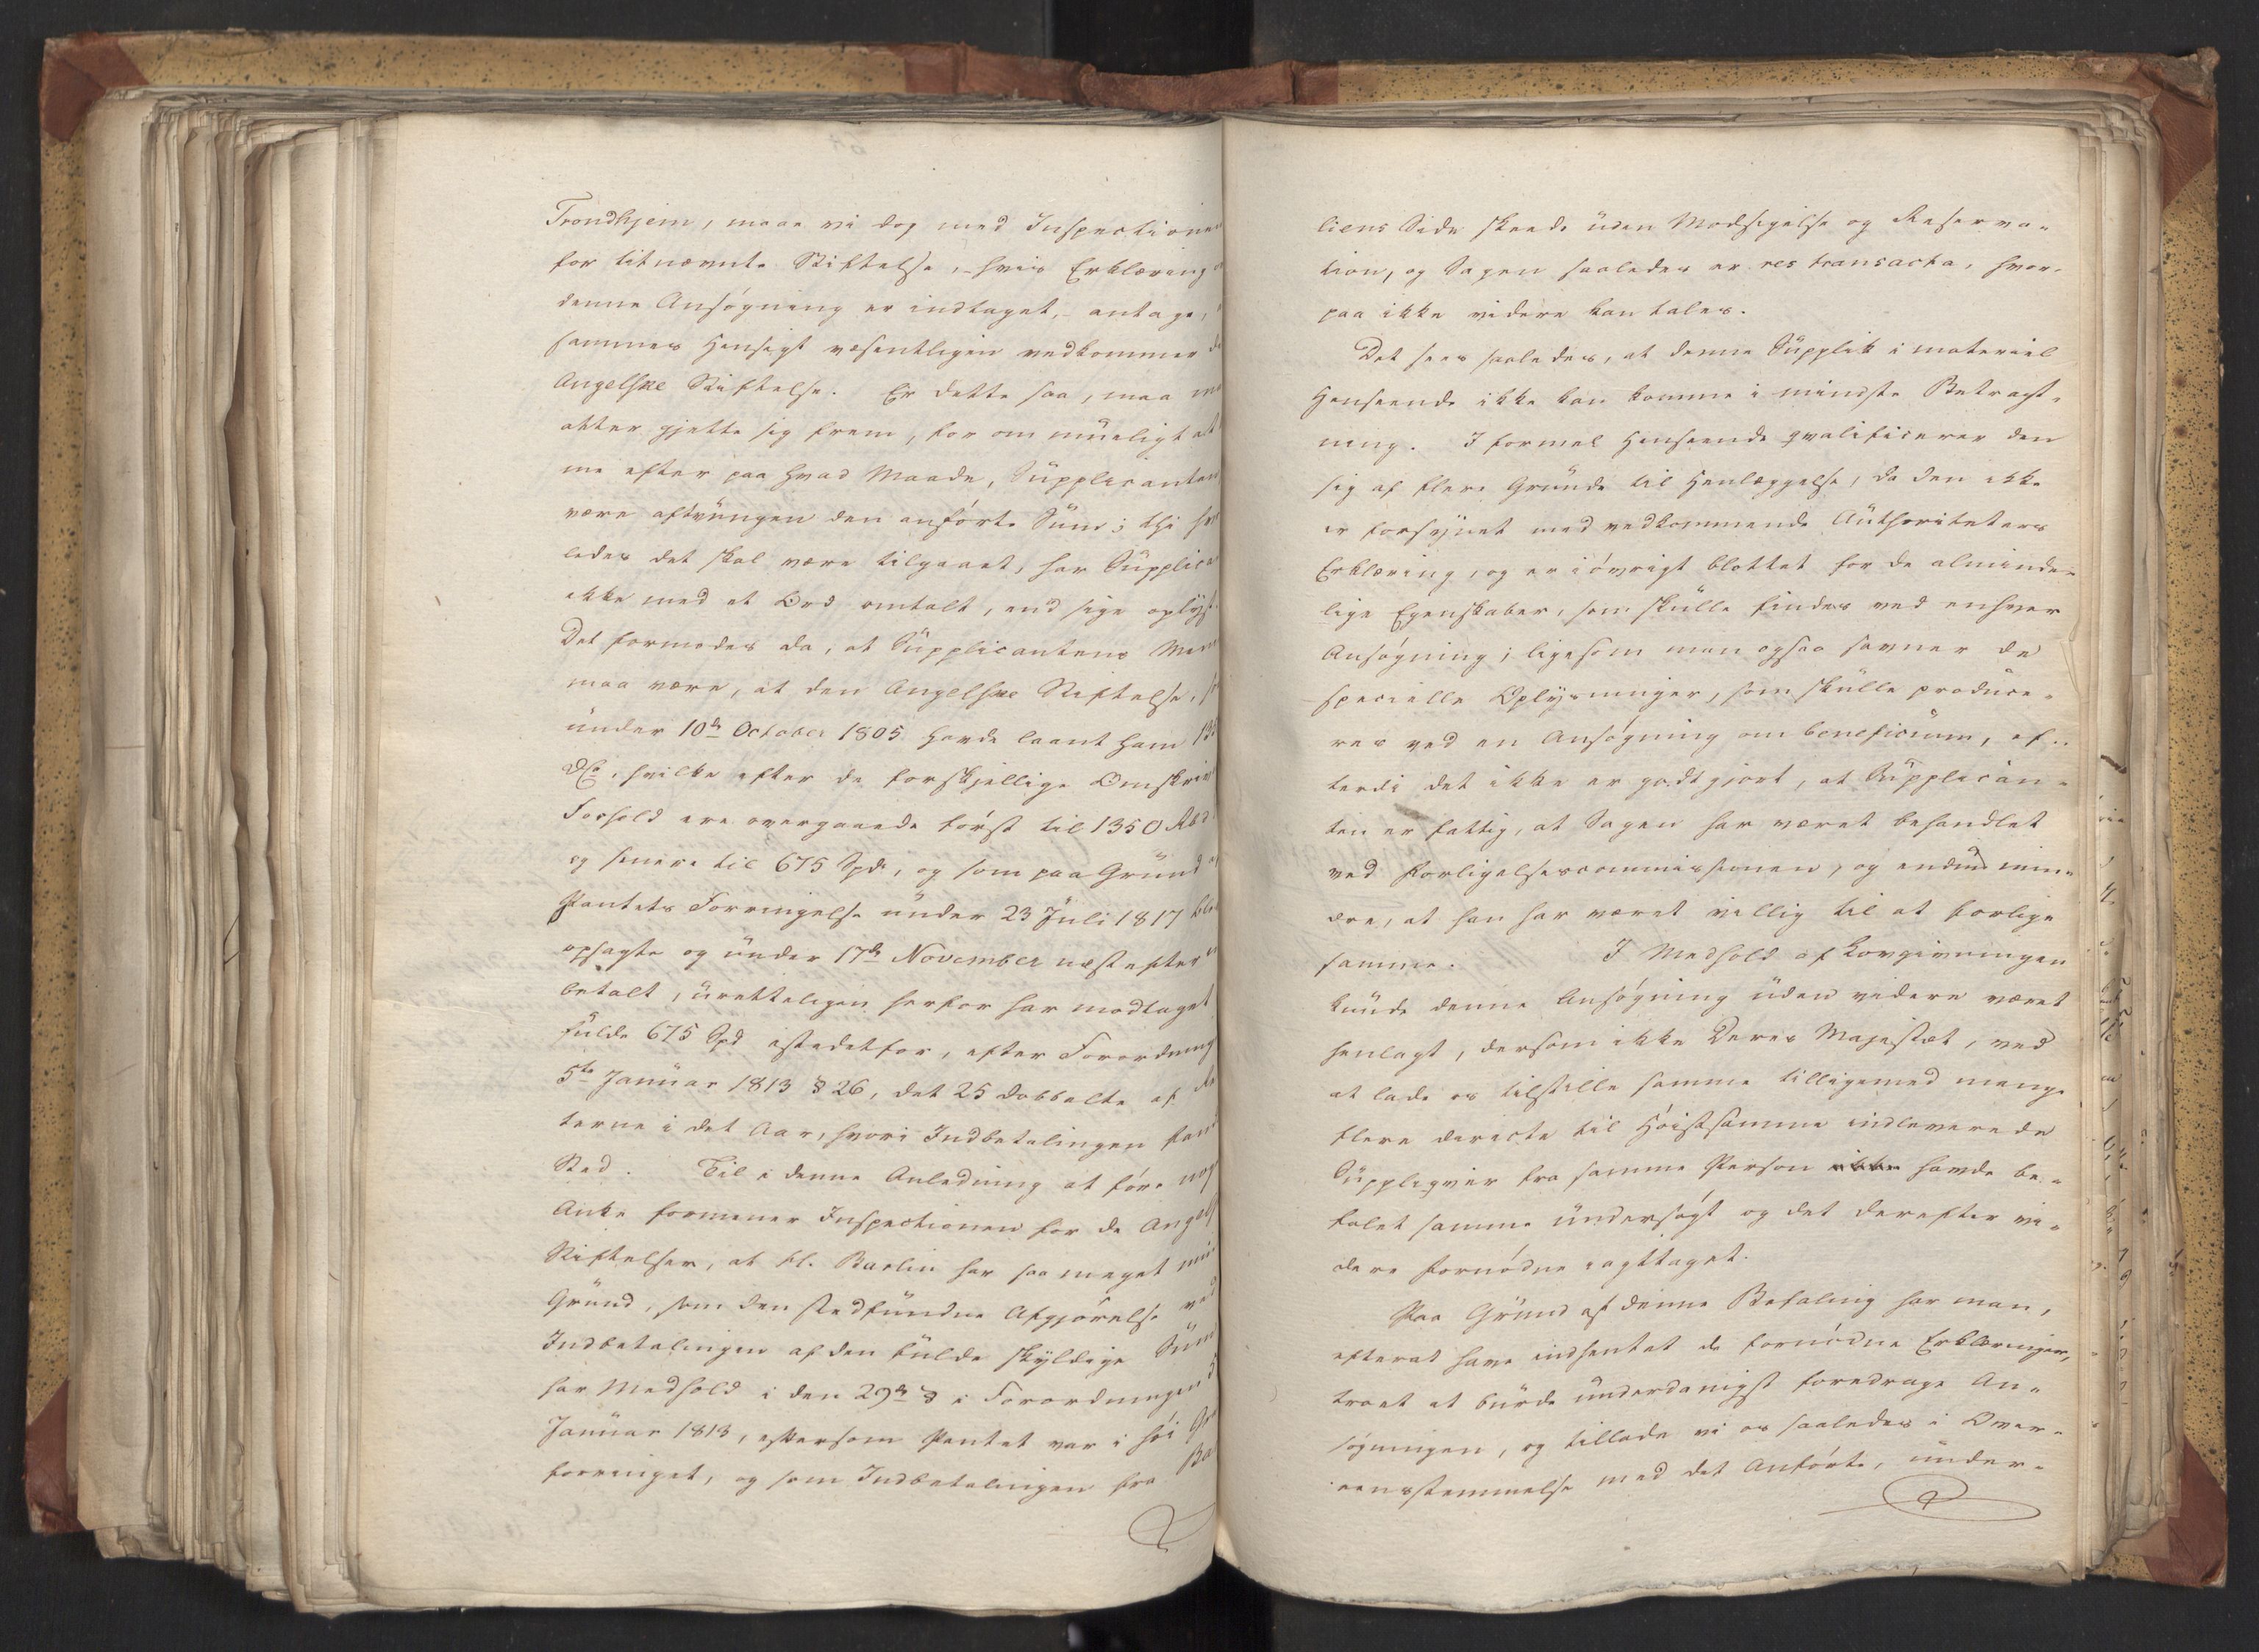 Trondhjem, maae vi dog med Inspectionen
for titnævnte Stiftelse, – hvis Erklæring
denne Ansøgning er indtaget, – antage,
sammes Hensigt væsentligen vedkommer
Angelske Stiftelse. Er dette saa, maa
atter gjette sig frem, for om mueligt at
me efter paa hvad Maade, Supplicanten
være aftvungen den anførte Sum; thi
ledes det skal være tilgaaet, har Supplica
ikke med et Ord omtalt, end sige oplyst.
Det formodes da, at Supplicantens Men
maa være, at den Angelske Stiftelse,
under 10de October 1805 havde laant ham
, hvilke efter de forskjellige Omskriv
Forhold ere overgaaede først til 1350 Rbd
og senere til 675 Spd, og som paa Grund
Pantets Forringelse under 23 Juli 1817
opsagte og under 17de November næstefter
betalt, uretteligen herfor har modtaget
fulde 675 Spd istedetfor, efter Forordning
5te Januar 1813 § 26, det 25 dobbelte af
terne i det Aar, hvori Indbetalingen fandt
Sted. Til i denne Anledning at føre nog
Anke formener Inspectionen for de Angelsk
Stiftelser, at hr. Barlin har saa meget min
Grund, som den stedfundne Afgjørelse ved
Indbetalingen af den fulde skyldige Sum
har Medhold i den 29de § i Forordningen 5
Januar 1813, eftersom Pantet var i høi Gr
forringet, og som Indbetalingen fra Ba
liens Side skeede uden Modsigelse og Reserva-
tion, og Sagen saaledes er res transacta, hvor-
paa ikke videre kan tales.
Det sees saaledes, at denne Supplik i materiel
Henseende ikke kan komme i mindste Betragt-
ning. I formel Henseende qvalificerer den
sig af flere Grunde til Henlæggelse, da den ikke
er forsynet med vedkommende Authoriteters
Erklæring, og er iøvrigt blottet for de alminde-
lige Egenskaber, som skulle findes ved enhver
Ansøgning; ligesom man ogsaa savner de
specielle Oplysninger, som skulle produce-
res ved en Ansøgning om beneficium, ef-
terdi det ikke er godtgjort, at Supplican-
ten er fattig, at Sagen har været behandlet
ved Forligelsescommissionen, og endnu min-
dre, at han har været villig til at forlige
samme. I Medhold af Lovgivningen
kunde denne Ansøgning uden videre været
henlagt, dersom ikke Deres Majestæt, ved
at lade os tilstille samme tilligemed mange
flere directe til Høistsamme indleverede
Suppliqver fra samme Person ikke havde be-
falet samme undersøgt og det derefter vi-
dere fornødne iagttaget.
Paa Grund af denne Befaling har man,
efterat have indhentet de fornødne Erklæringer,
troet at burde underdanigst foredrage An-
søgningen, og tillade vi os saaledes i Over-
eensstemmelse med det Anførte, under-